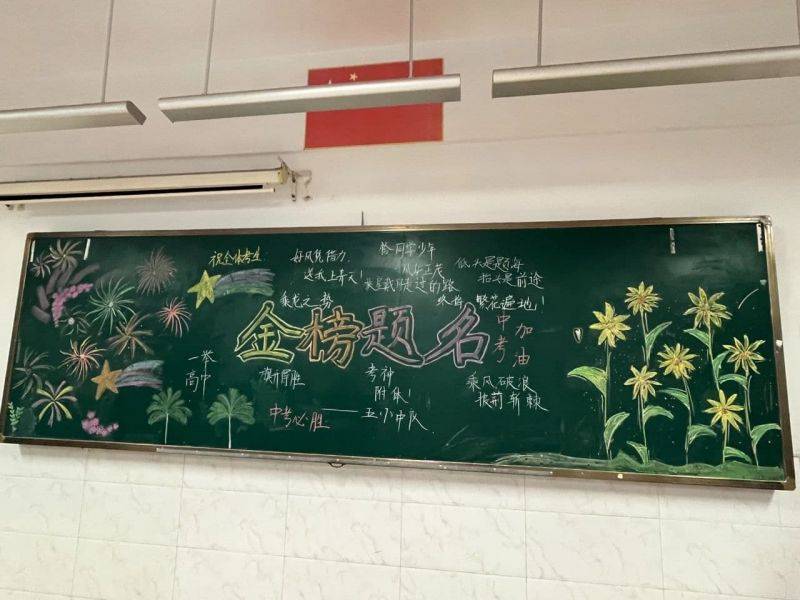 祝全体考生:
好风凭借力
送我上青天!
恰同学少年
风华正茂
低头是题海
抬头是前途
我们走过的路
终有繁花遍地!
乘龙之势
金榜题名
中考
加油
一举
高中
旗开得胜
考神
附体!
乘风破浪
披荆斩棘
中考必胜
五小中队